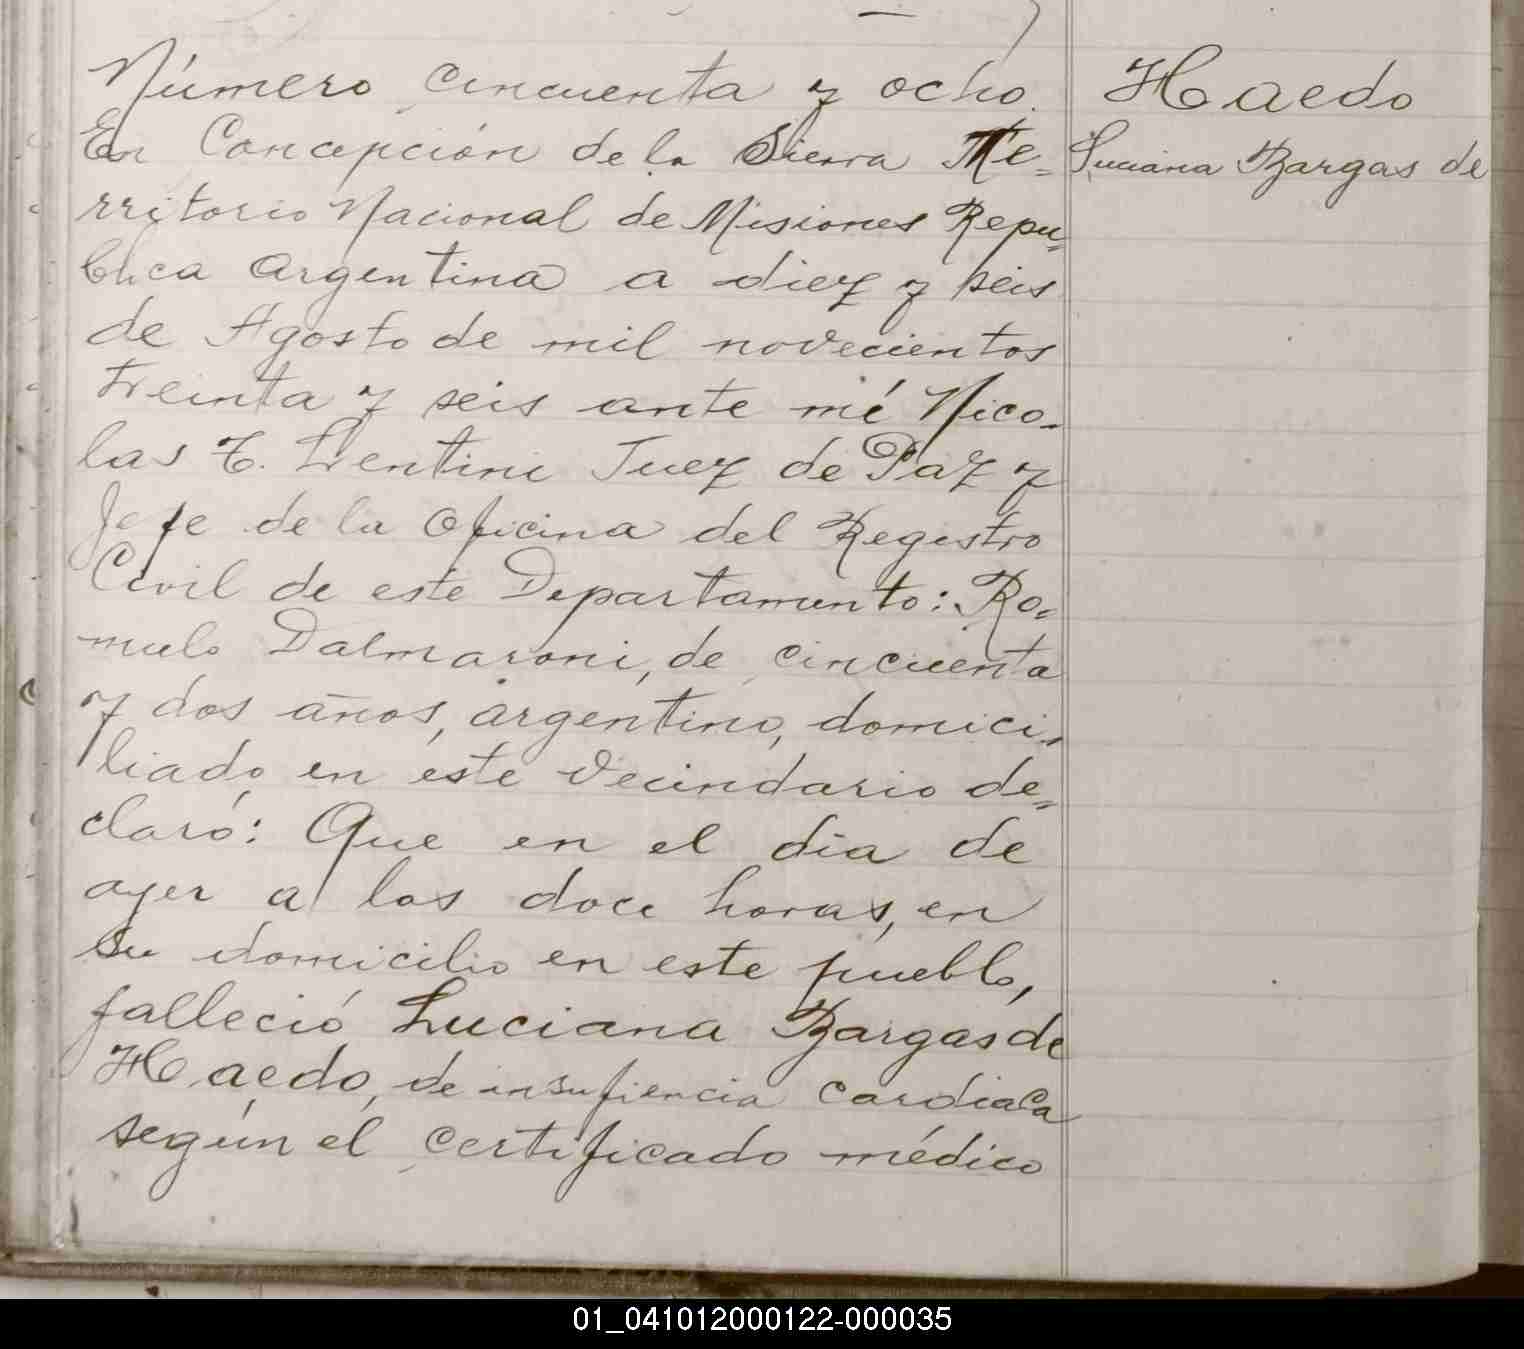 Número cincuenta y ocho.
En Concepción de la Sierra Te=
rritorio Nacional de Misiones Repu=
blica Argentina a diez y seis
de Agosto de mil novecientos
treinta y seis ante mé Nico-
las T. Lentini Juez de Paz y
Jefe de la Oficina del Registro
Civil de este Departamento: Ro=
mulo Dalmaroni, de cincuenta
y dos años, argentino, domici-
liado en este vecindario de=
claró: Que en el dia de
ayer a las doce horas, en
su domicilio en este pueblo,
falleció Luciana Bargas de
Haedo, de insufiencia cardiaca
según el certificado médico
Haedo
Luciana Bargas de
01_041012000122-000035